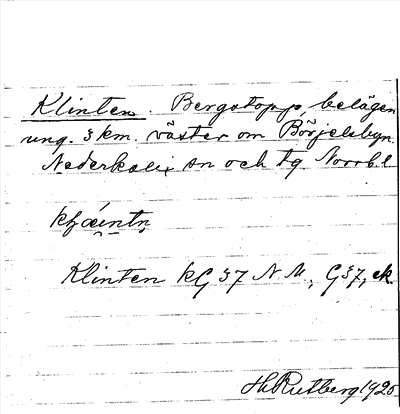 Klinten. Bergstopp, belägen
ung. 3 km. väster om Börjelsbyn.
Nederkalix sn och tg. Norrb. l
Klinten kG 37 N M., G 37, ek.
Hj. Rutberg 1925